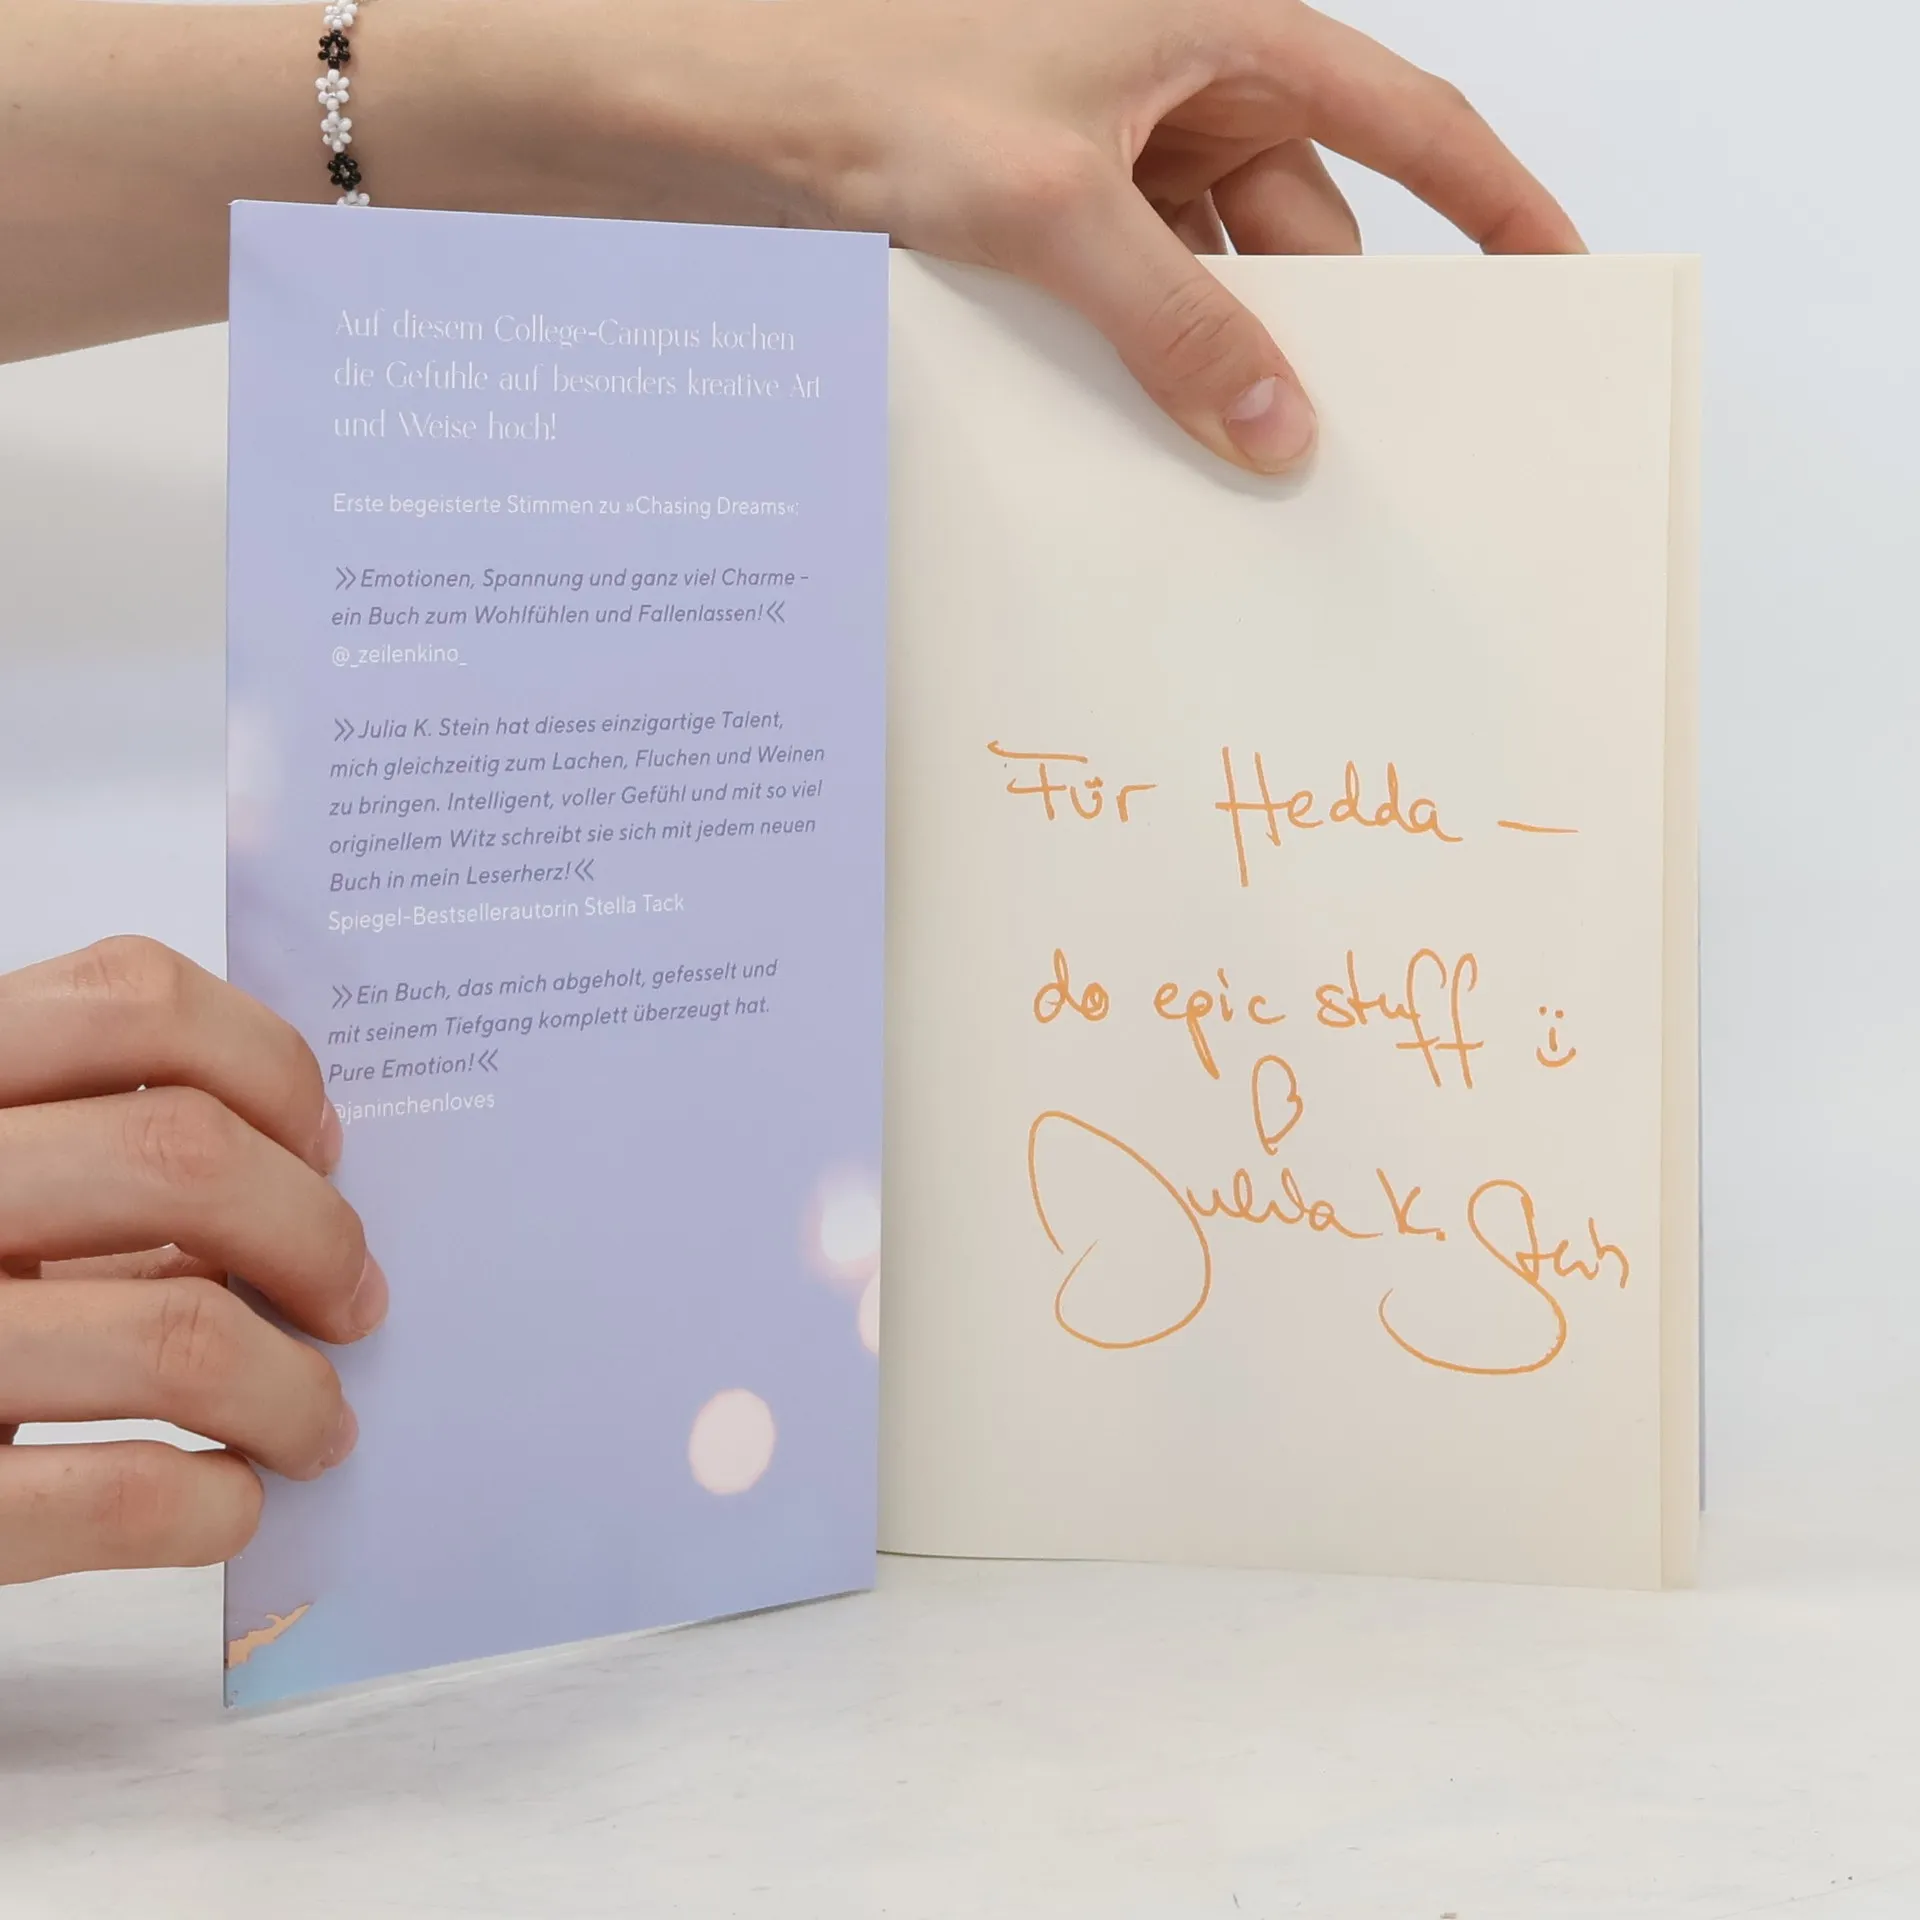 Auf diesem College-Campus kochen
die Gefühle auf besonders kreative Art
und Weise hoch!
Erste begeisterte Stimmen zu »Chasing Dreams«:
»Emotionen, Spannung und ganz viel Charme –
ein Buch zum Wohlfühlen und Fallenlassen!«
@_zeilenkino_
»Julia K. Stein hat dieses einzigartige Talent,
mich gleichzeitig zum Lachen, Fluchen und Weinen
zu bringen. Intelligent, voller Gefühl und mit so viel
originellem Witz schreibt sie sich mit jedem neuen
Buch in mein Leserherz!«
Spiegel-Bestsellerautorin Stella Tack
»Ein Buch, das mich abgeholt, gefesselt und
mit seinem Tiefgang komplett überzeugt hat.
Pure Emotion!«
@janinchenloves
Für Hedda –
do epic stuff
Julia K. Stein